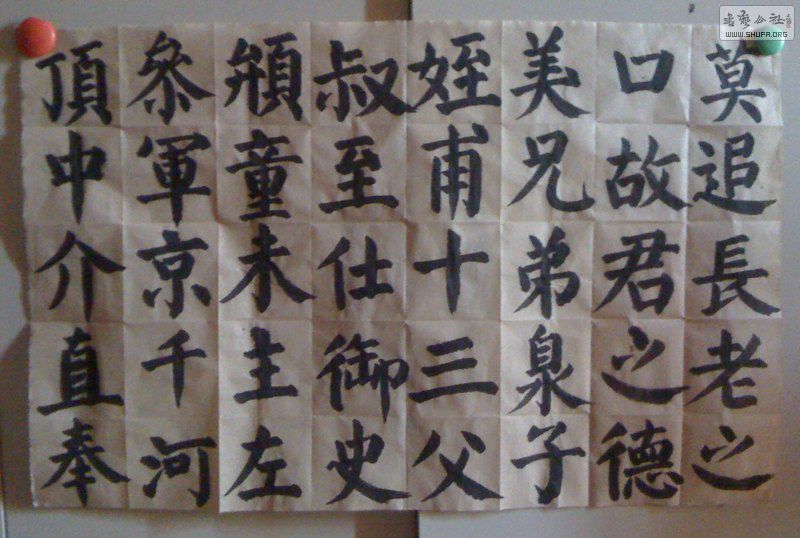 莫追長老之
口故君之德
美兄弟泉子
姪甫十三父
叔至仕御史
頩童未主左
叅軍京千河
頂中介直奉
WWW.SHUFA.ORG